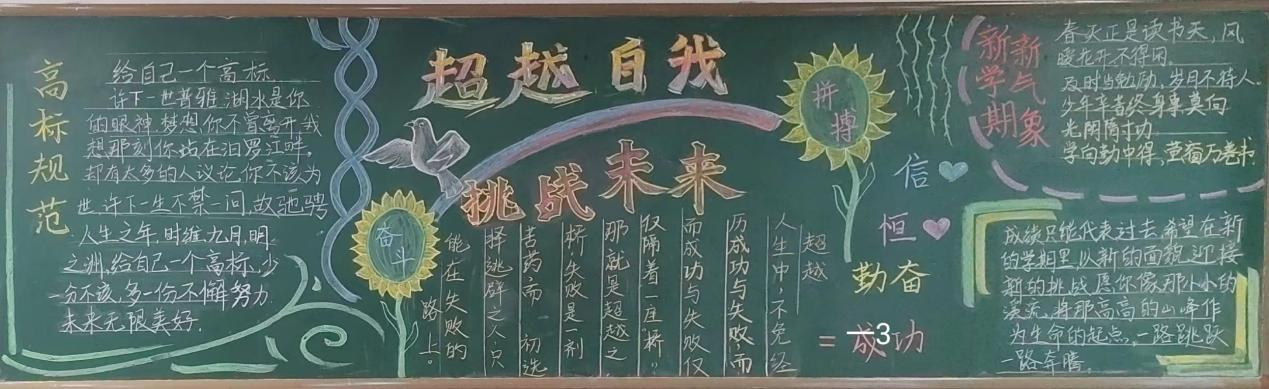 高标规范
给自己一个高标
许下一世普雅,湖水是你
的眼神,梦想你不曾离开,我
想那刻你站在汨罗江畔,
却有太多的人议论,你不该为
世,许下一生不禁一问,故驰骋
人生之年,时维九月,明
之洲,给自己一个高标,少
一分不该,多一份不懈努力
未来无限美好.
超越自我
挑战未来
奋斗
拼搏
超越
人生中,不免经
历成功与失败,而
而成功与失败仅
仅隔着一座"桥"。
那就是超越之
桥,失败是一剂
苦药而初选
择逃避之人,只
能在失败的
路上。
信
恒
勤奋
=成功
3
新学期
新气象
春天正是读书天,风
暖花开不得闲,
及时当勉励,岁月不待人.
少年辛苦终身事,莫向
光阴隋寸功
学向勤中得,萤窗万卷书
成绩只能代表过去,希望在新
的学期里,以新的面貌,迎接
新的挑战,愿你像那小小的
溪流,将那高高的山峰作
为生命的起点,一路跳跃
一路奔腾。